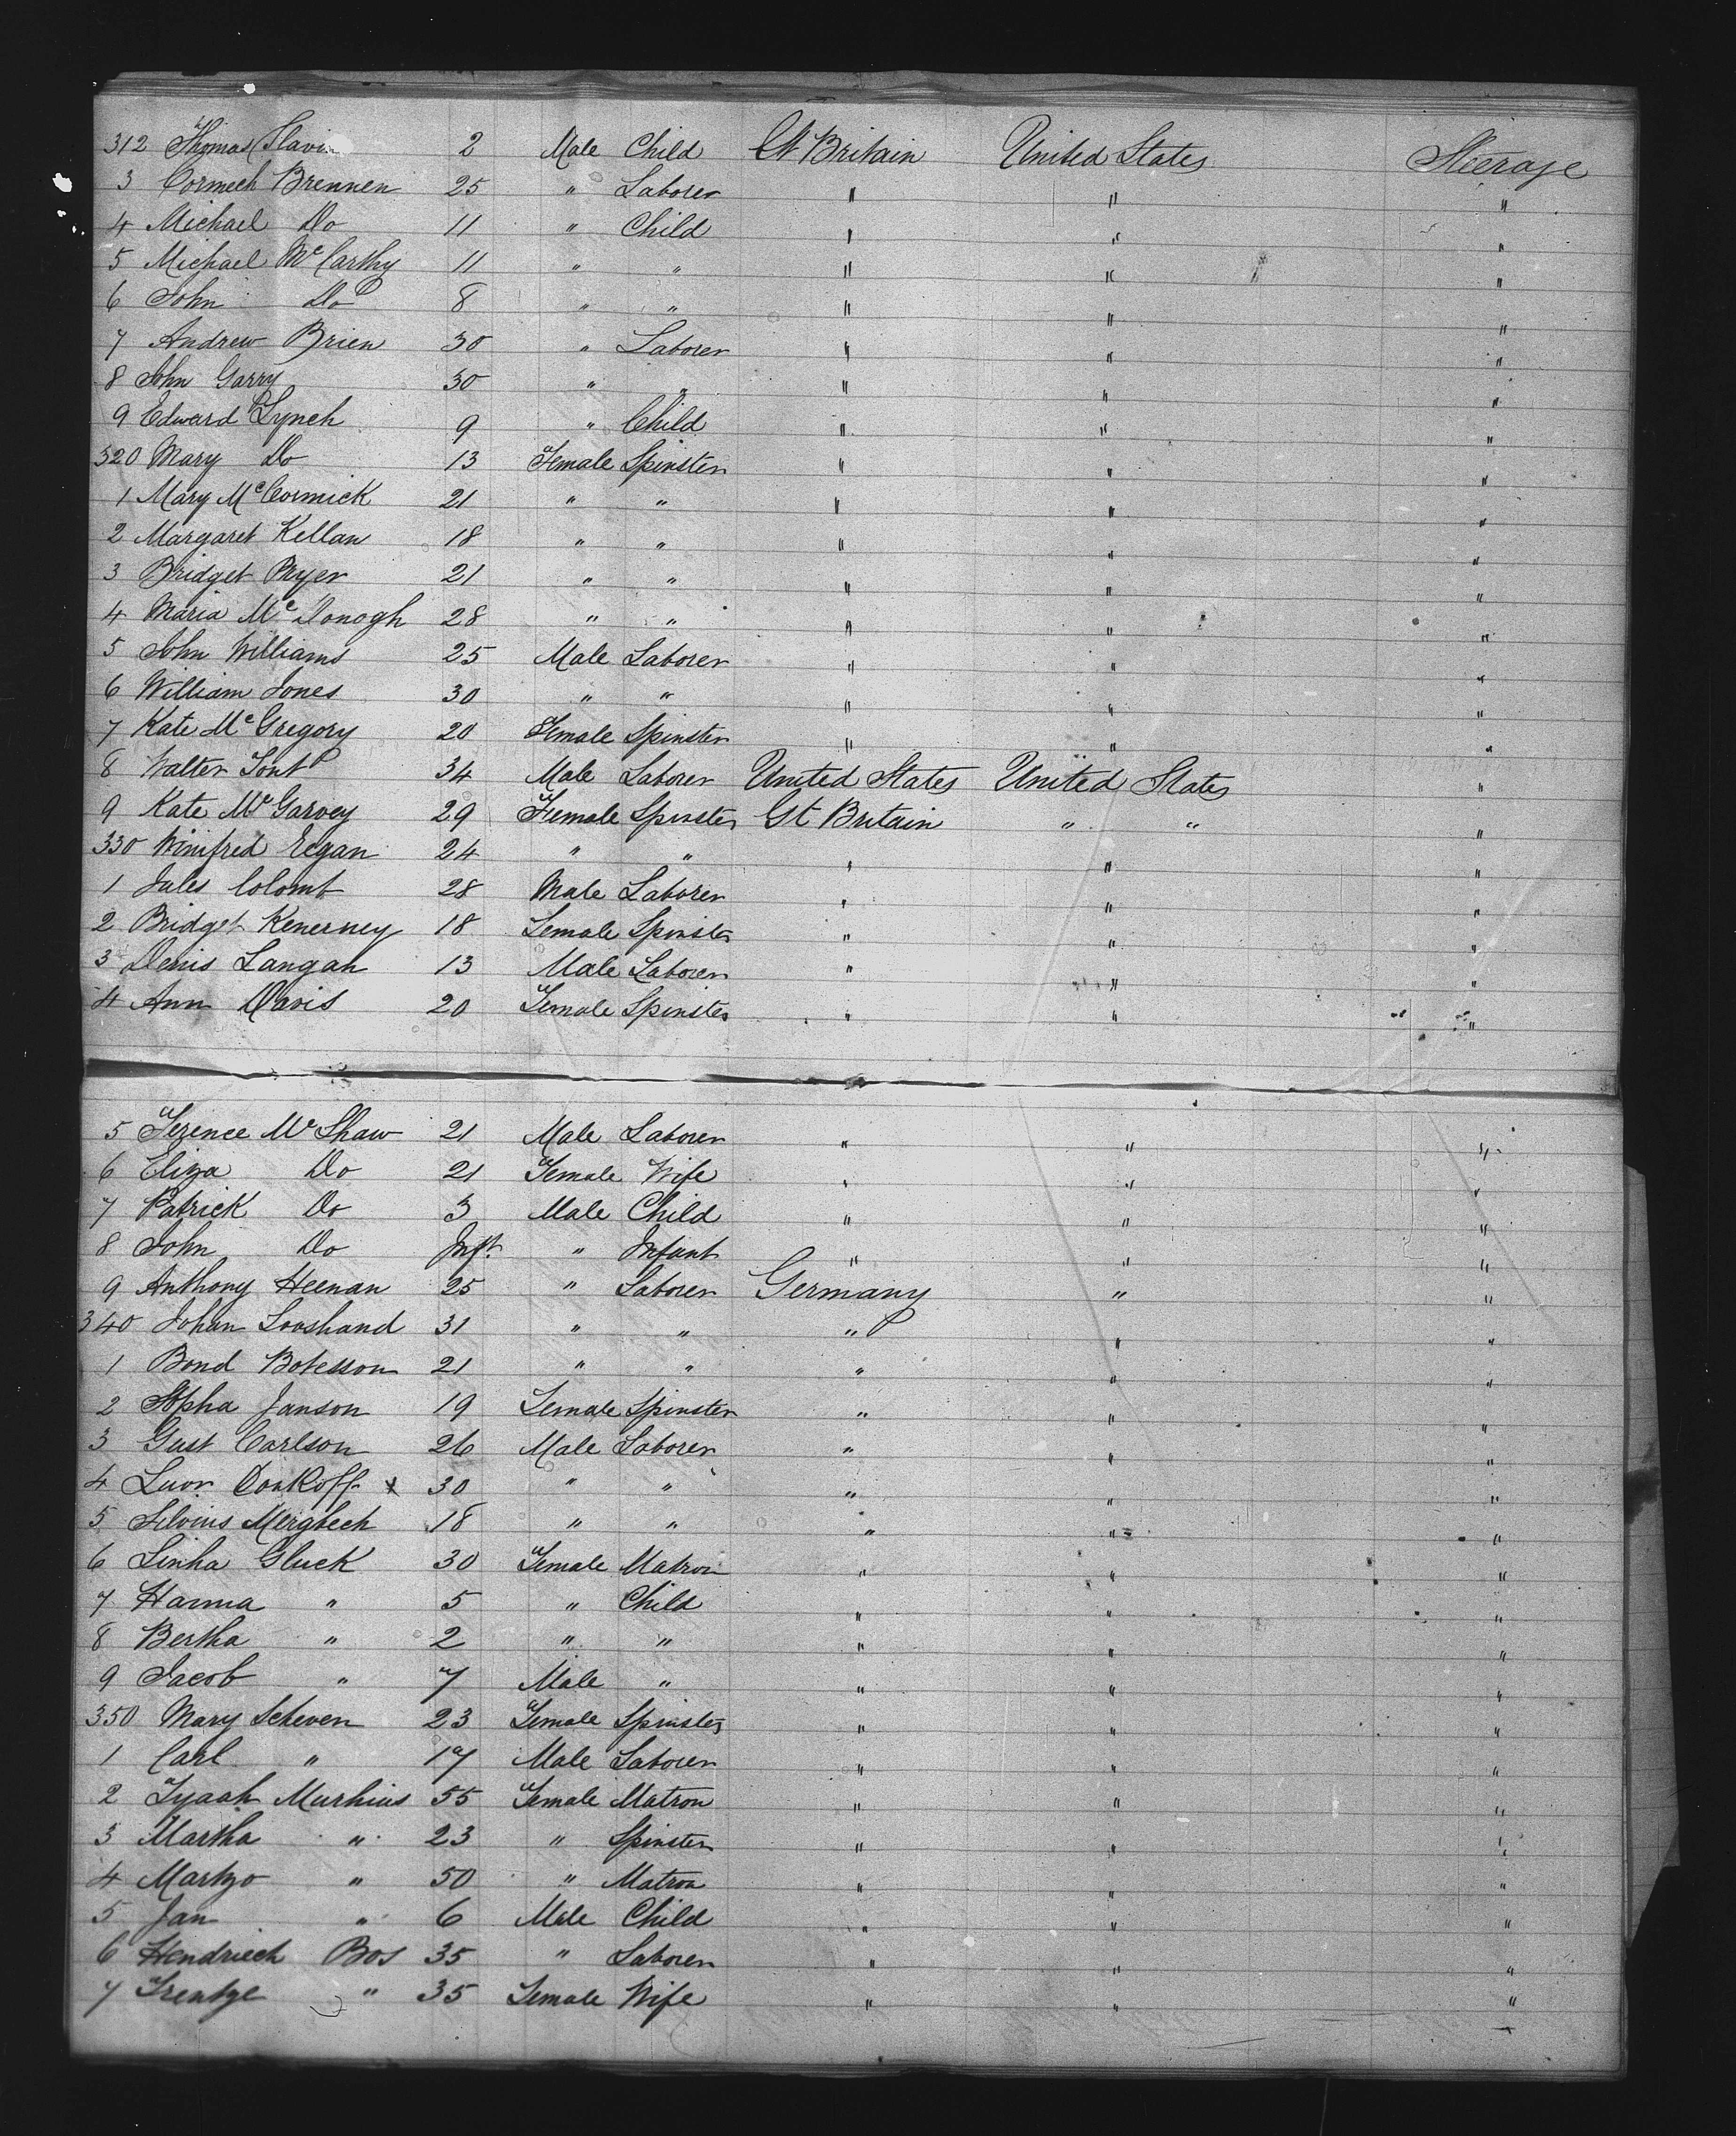 312 Thomas Slavin 2 Male Child Gt Britain United States Steerage
3 Cormech Brennen 25 " Laborer " " "
4 Michael Do 11 " Child " " "
5 Michael McCarthy 11 " " " " "
6 John Do 8 " " " " "
7 Andrew Brien 30 " Laborer " " "
8 John Garry 30 " " " " "
9 Edward Lynch 9 " Child " " "
320 Mary Do 13 Female Spinster " " "
1 Mary McCormick 21 " " " " "
2 Margaret Kellan 18 " " " " "
3 Bridget Pryer 21 " " " " "
4 Maria McDonogh 28 " " " " "
5 John Williams 25 Male Laborer " " "
6 William Jones 30 " " " " "
7 Kate McGregory 20 Female Spinster " " "
8 Walter 34 Male Laborer United States United States "
9 Kate McGarvey 29 Female Spinster Gt Britain " " "
330 Winifred Eegan 24 " " " " "
1 Jules Colomb 28 Male Laborer " " "
2 Bridget Kenerney 18 Female Spinster " " "
3 Denis Langan 13 Male Laborer " " "
4 Ann Davis 20 Female Spinster " " "
5 Terence McShaw 21 Male Laborer " " "
6 Eliza Do 21 Female Wife " " "
7 Patrick Do 3 Male Child " " "
8 John Do Inft. " Infant " " "
9 Anthony Heenan 25 " Laborer Germany " "
340 Johan Looshand 31 " " " " "
1 Bond Botesson 21 " " " " "
2 Sopha Janson 19 Female Spinster " " "
3 Gust Carlson 26 Male Laborer " " "
4 x 30 " " " " "
5 Mergbech 18 " " " " "
6 Linha Gluck 30 Female Matron " " "
7 Hanna " 5 " Child " " "
8 Bertha " 2 " " " " "
9 Jacob " 7 Male " " " "
350 Mary Scheven 23 Female Spinster " " "
1 Carl " 17 Male Laborer " " "
2 Murhius 55 Female Matron " " "
3 Martha " 23 " Spinster " " "
4 Martzo " 50 " Matron " " "
5 Jan " 6 Male Child " " "
6 Hendriech Bos 35 " Laborer " " "
7 Trentze " 35 Female Wife " " "